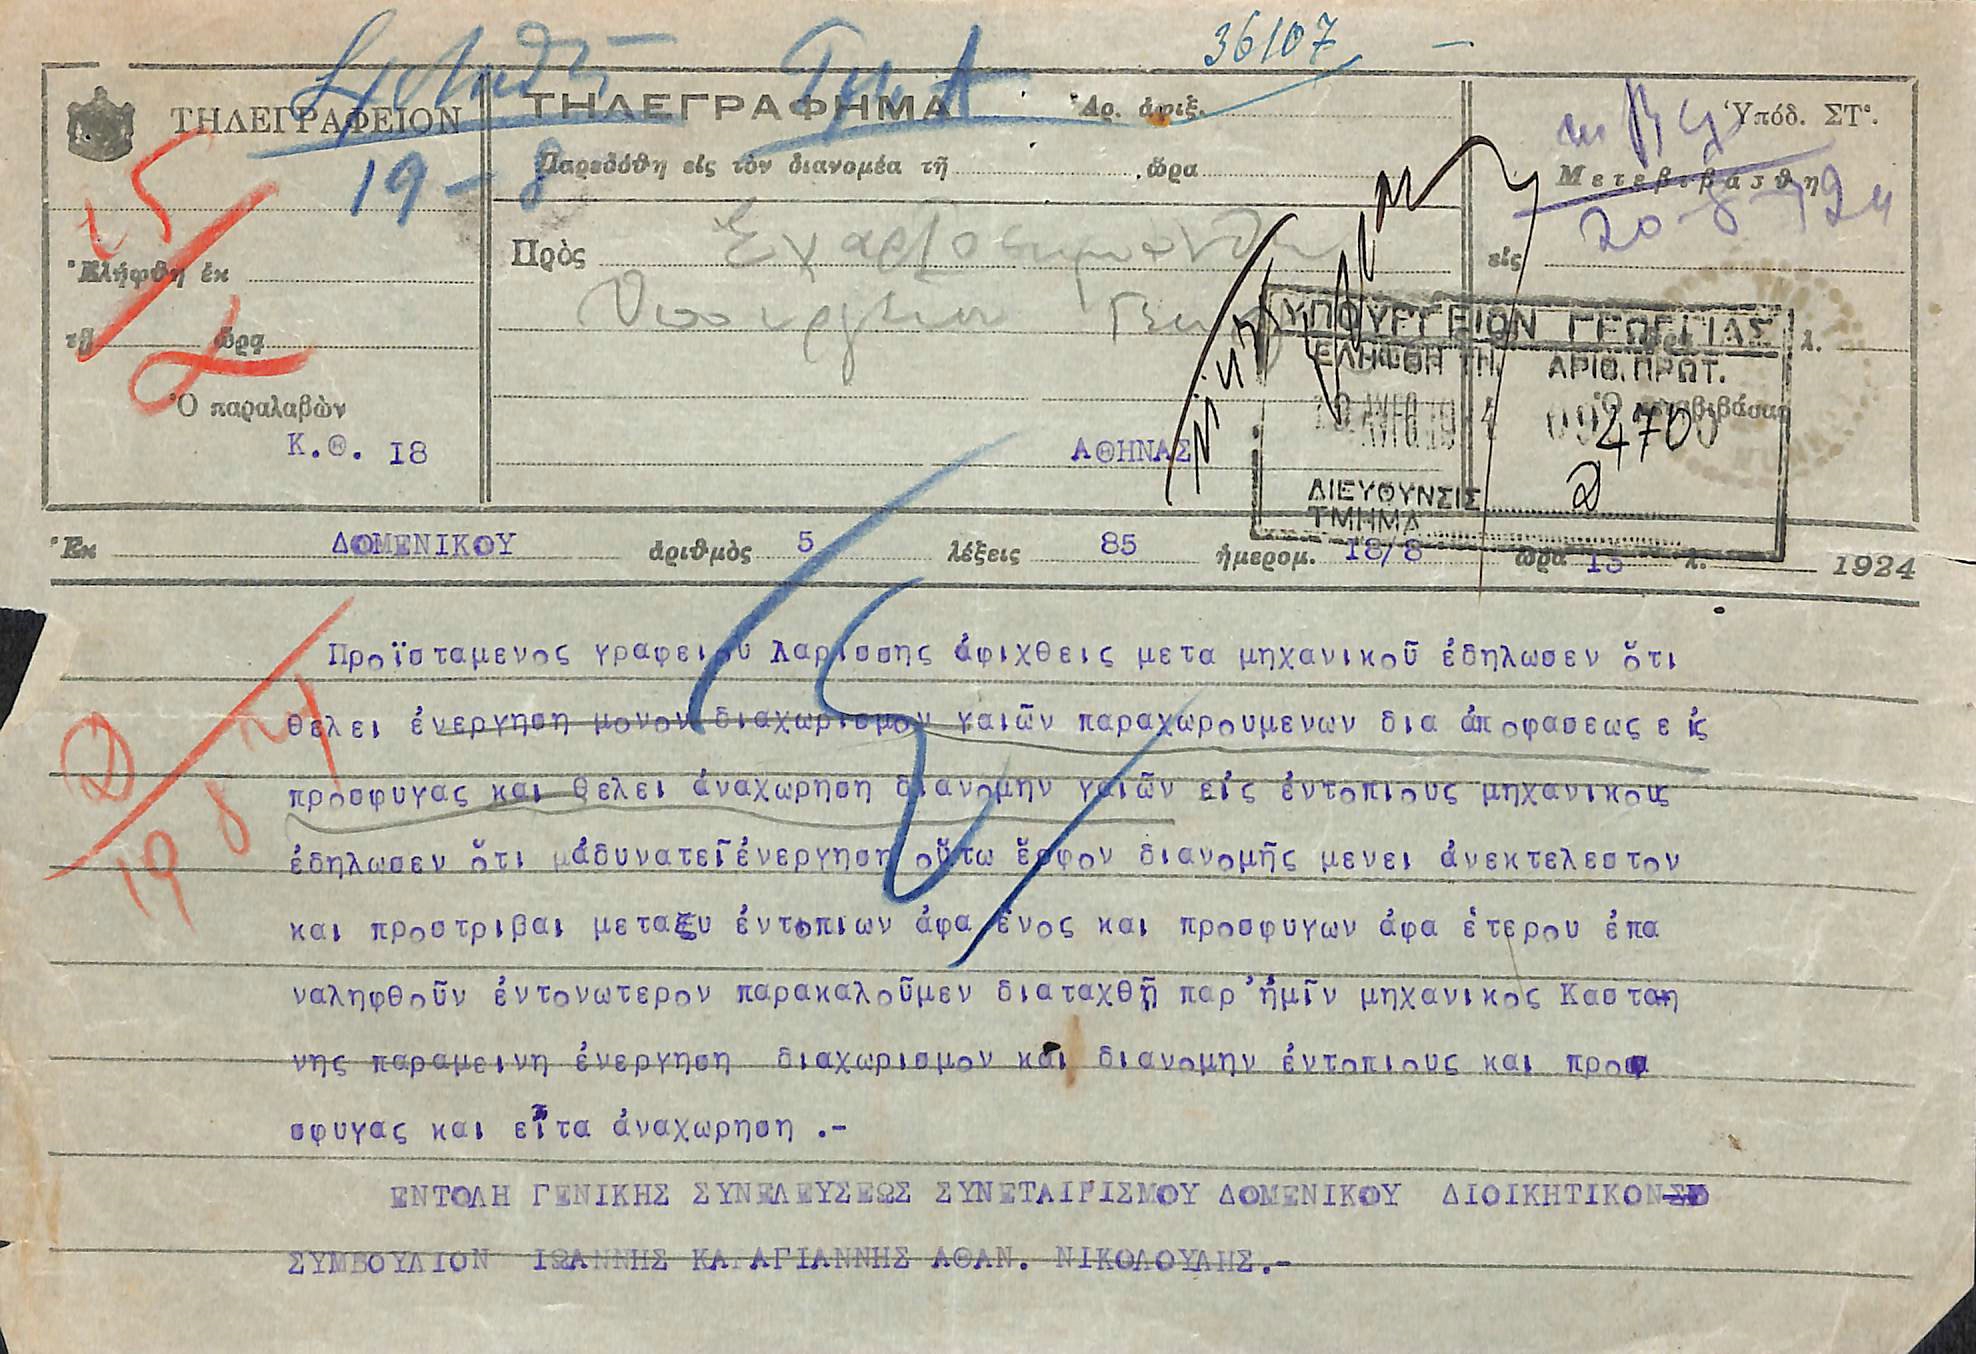 36107
ΤΗΛΕΓΡΑΦΕΙΟΝ
ΤΗΛΕΓΡΑΦΗΜΑ
Ἀρ. ἀφιξ.
Ὑπόδ. ΣΤʹ.
19-8
Παρεδόθη εἰς τὸν διανομέα τῇ ὥρα
Μετεβιβάσθη
20-8-924
Ἐλήφθη ἐκ
Πρὸς
εἰς
Ὑπουργεῖον
τῇ ὥρα
ΥΠΟΥΡΓΕΙΟΝ ΓΕΩΡΓΙΑΣ
ΕΛΗΦΘΗ ΤΗ. ΑΡΙΘ. ΠΡΩΤ.
Ὁ παραλαβὼν
Ὁ μεταβιβάσας
2470
Κ.Θ. 18
ΑΘΗΝΑΣ
ΔΙΕΥΘΥΝΣΙΣ
ΤΜΗΜΑ
Ἐκ ΔΟΜΕΝΙΚΟΥ ἀριθμὸς 5 λέξεις 85 ἡμερομ. 18/8 ὥρα 13 λ. 1924
Προϊσταμενος γραφειου Λαρισσης ἀφιχθεις μετα μηχανικοῦ ἐδηλωσεν ὅτι
θελει ἐνεργηση μονον διαχωρισμον γαιῶν παραχωρουμενων δια ἀποφασεως εἰς
προσφυγας και θελει ἀναχωρηση διανομην γαιῶν εἰς ἐντοπιους μηχανικους
ἐδηλωσεν ὅτι ἀδυνατεῖ ἐνεργηση οὕτω ἔρφον διανομῆς μενει ἀνεκτελεστον
και προστριβαι μεταξυ ἐντοπιων ἀφα ἑνος και προσφυγων ἀφα ἑτερου ἐπα
ναληφθοῦν ἐντονωτερον παρακαλοῦμεν διαταχθῇ παρ'ἡμῖν μηχανικος Καστα
νης παραμεινη ἐνεργηση διαχωρισμον και διανομην ἐντοπιους και προ
σφυγας και εἶτα ἀναχωρηση .-
ΕΝΤΟΛΗ ΓΕΝΙΚΗΣ ΣΥΝΕΛΕΥΣΕΩΣ ΣΥΝΕΤΑΙΡΙΣΜΟΥ ΔΟΜΕΝΙΚΟΥ ΔΙΟΙΚΗΤΙΚΟΝ
ΣΥΜΒΟΥΛΙΟΝ ΙΩΑΝΝΗΣ ΚΑΡΑΓΙΑΝΝΗΣ ΑΘΑΝ. ΝΙΚΟΛΟΥΛΗΣ.-